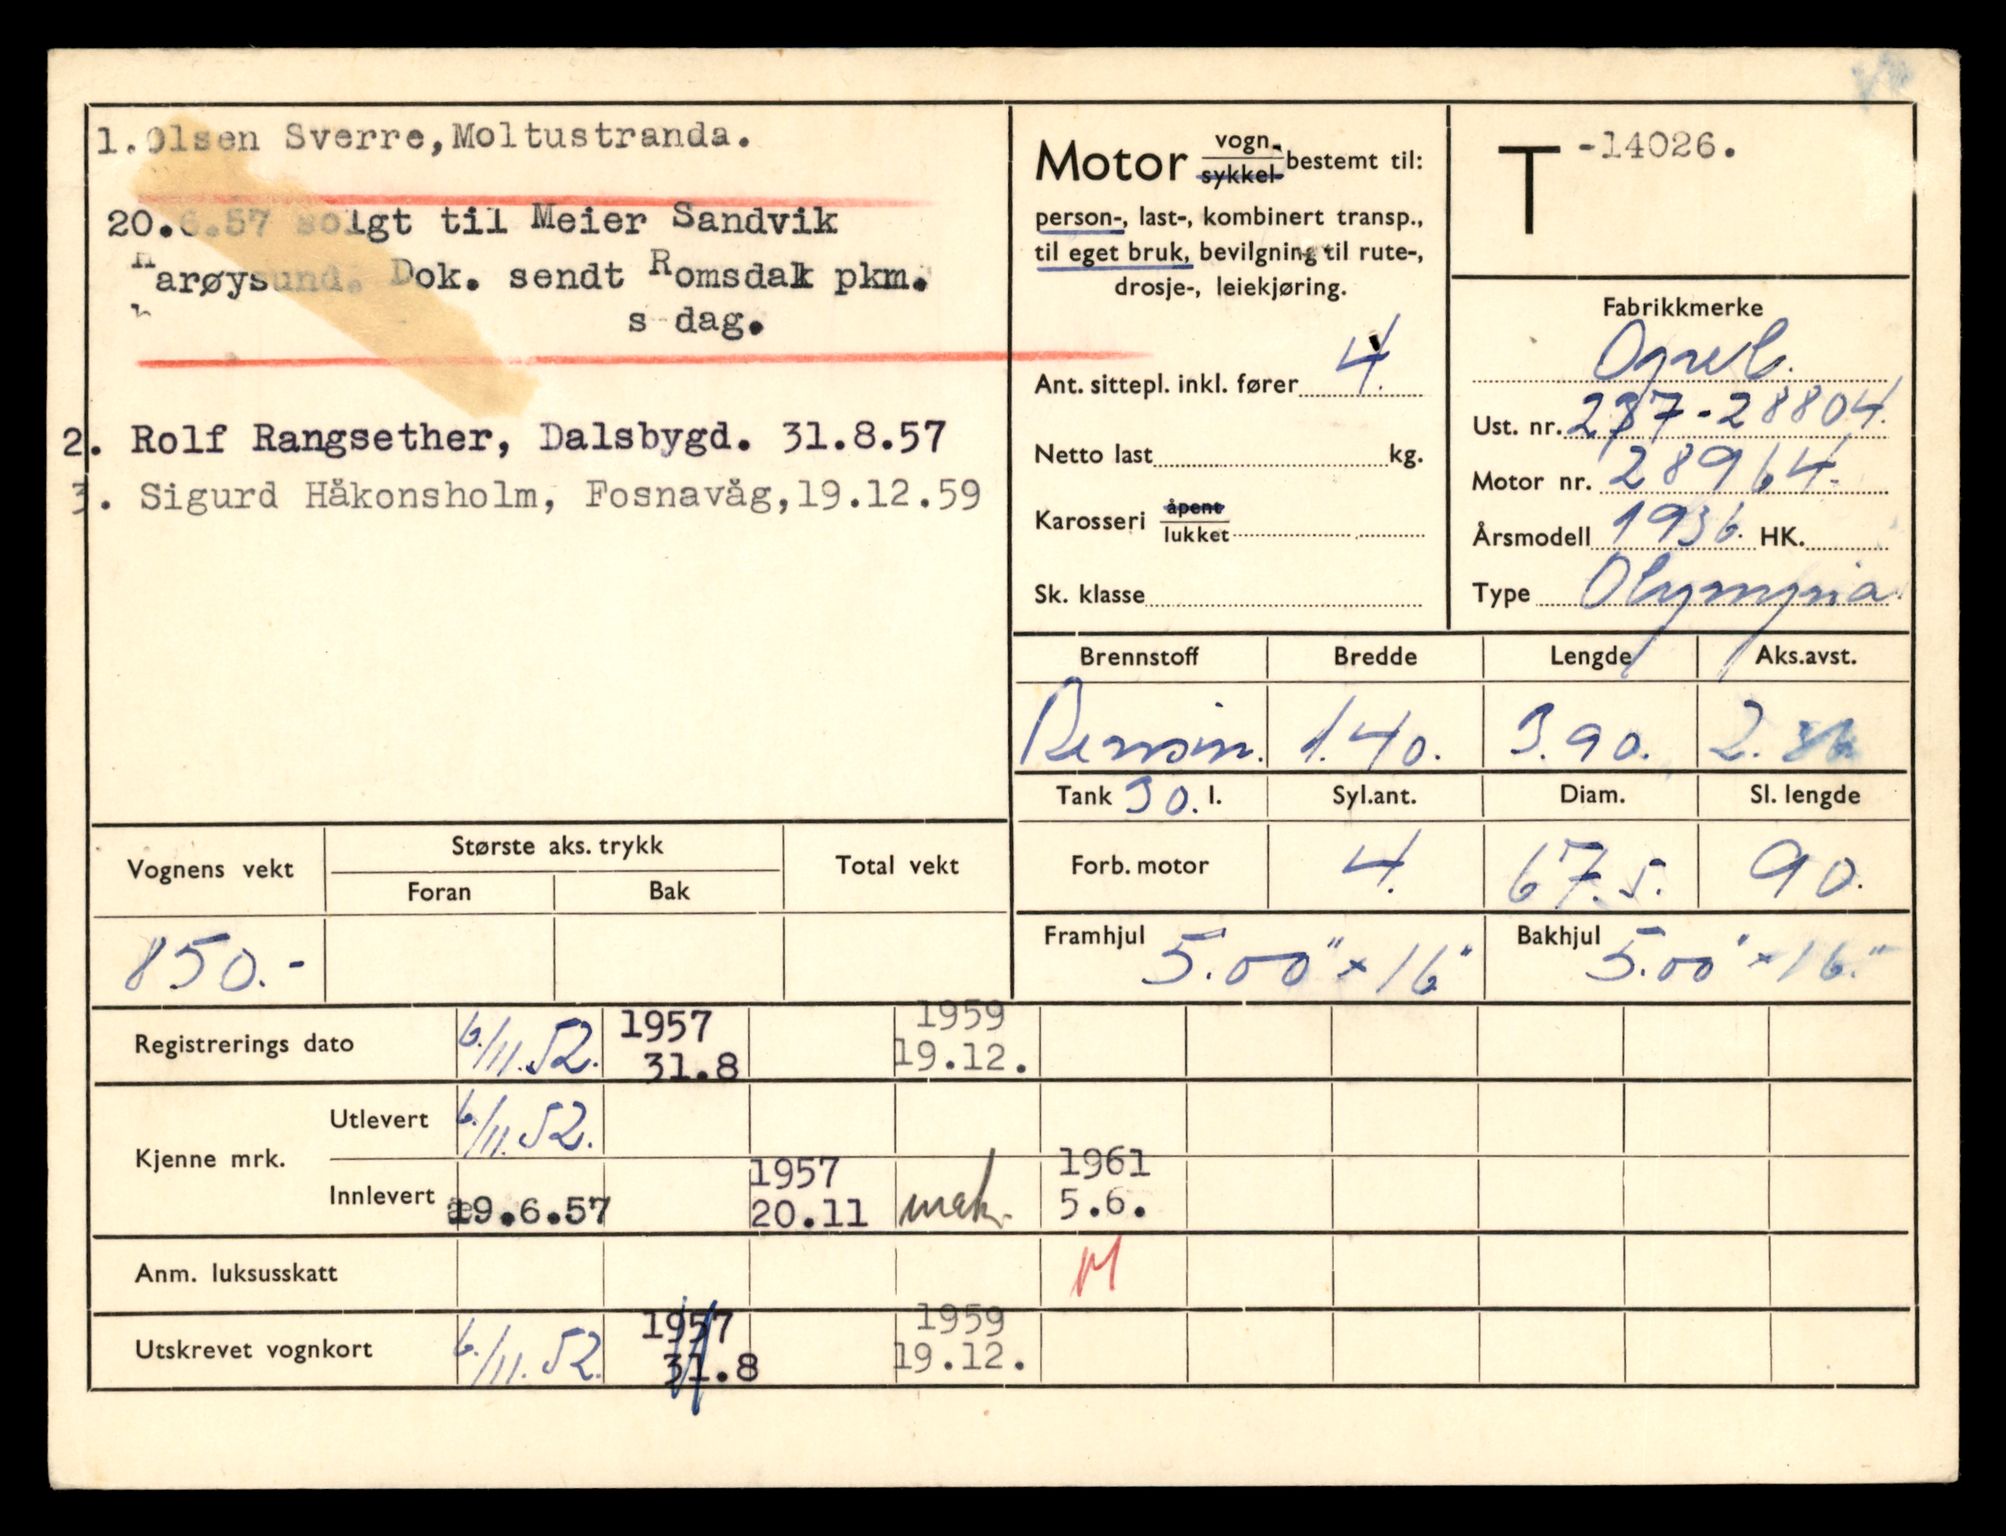 1. Olsen Sverre, Moltustranda.
20.6.57 solgt til Meier Sandvik
Harøysund. Dok. sendt Romsdal pkm.
s dag.
2. Rolf Rangsether, Dalsbygd. 31.8.57
3. Sigurd Håkonsholm, Fosnavåg, 19.12.59
Motor vogn- sykkel bestemt til:
person-, last-, kombinert transp.,
til eget bruk, bevilgning til rute-,
drosje-, leiekjøring.
Ant. sittepl. inkl. fører 4.
Netto last kg.
Karosseri åpent lukket
Sk. klasse
T -14026.
Fabrikkmerke
Opel.
Ust. nr. 237-28804.
Motor nr. 28964.
Årsmodell 1936. HK.
Type Olympia.
Brennstoff Bredde Lengde Aks.avst.
Bensin. 1.40. 3.90. 2.
Tank 30. l. Syl.ant. Diam. Sl. lengde
Forb. motor 4. 67.5. 90.
Framhjul 5.00" x 16" Bakhjul 5.00" x 16."
Vognens vekt Største aks. trykk Total vekt
Foran Bak
850.-
Registrerings dato 6./11.52. 1957 31.8 1959 19.12.
Kjenne mrk.
Utlevert 6./11.52.
Innlevert 19.6.57 1957 20.11 mak. 1961 5.6.
Anm. luksusskatt M
Utskrevet vognkort 6./11.52. 1957 31.8 1959 19.12.